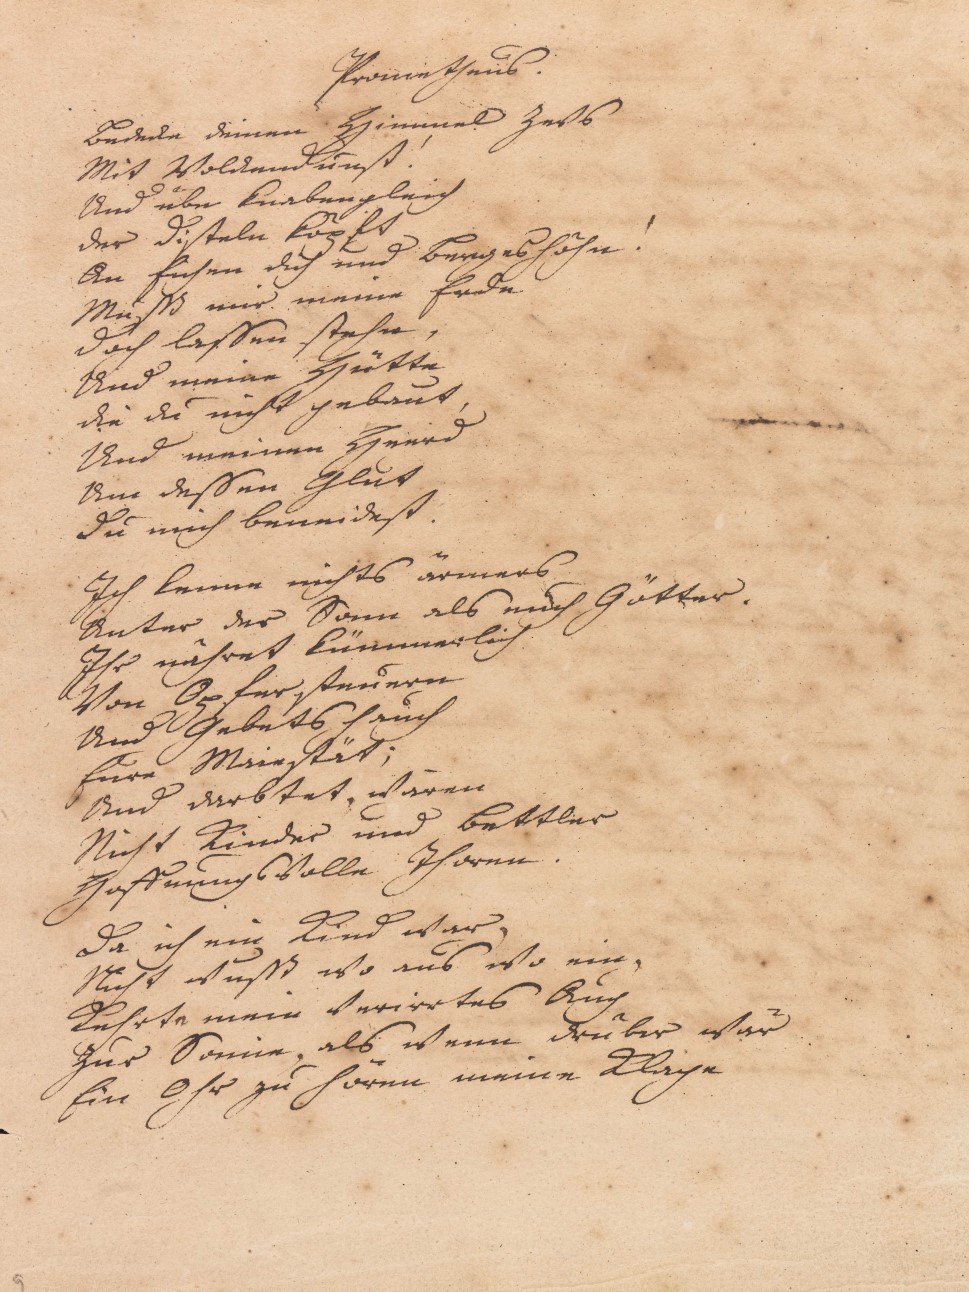 Prometheus.
Bedecke deinen Himmel Zevs
Mit Wolckendunst!
Und übe Knabengleich
der Disteln köpft
An Eichen dich und Bergeshöhn!
Musst mir meine Erde
doch lassen stehn,
Und meine Hütte
die du nicht gebaut,
Und meinen Heerd
Um dessen Glut
Du mich beneidest.
Ich kenne nichts ärmers
Unter der Sonn als euch Götter.
Ihr nähret kümmerlich
Von Opfersteuern
Und Gebetshauch
Eure Maiestät;
Und darbtet, wären
Nicht Kinder und Bettler
Hoffnungsvolle Thoren.
Da ich ein Kind war,
Nicht wusst wo aus wo ein,
Kehrte mein verirrtes Aug
Zur Sonne, als wenn drüber wär
Ein Ohr zu hören meine Klage
9